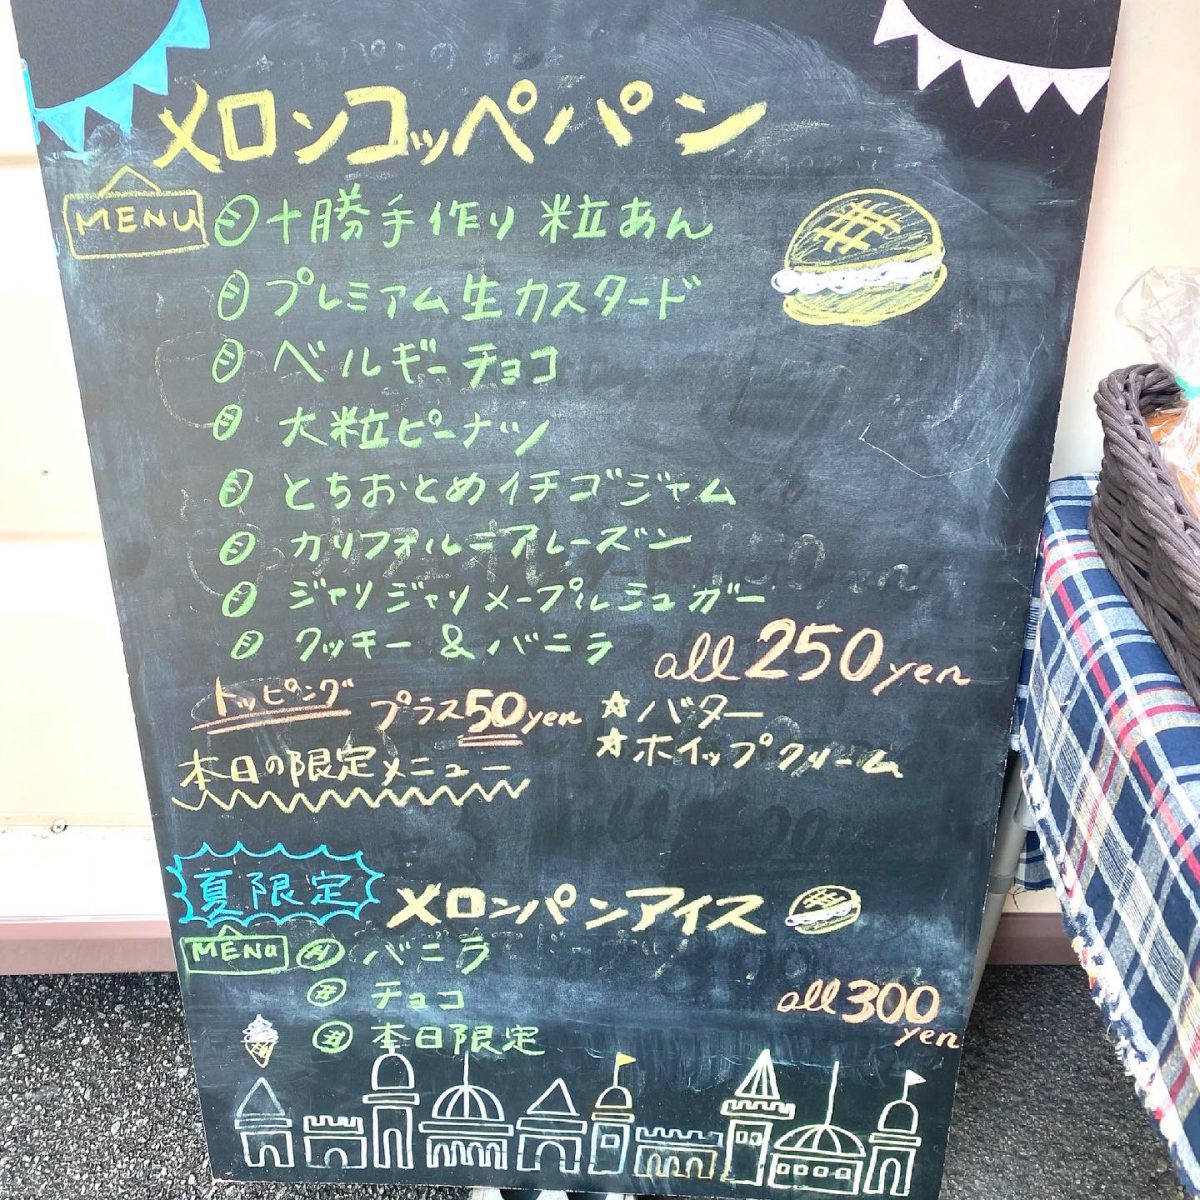 メロンコッペパン
MENU
十勝手作り 粒あん
プレミアム生カスタード
ベルギーチョコ
大粒ピーナツ
とちおとめイチゴジャム
カリフォルニアレーズン
ジャリジャリメープルシュガー
クッキー & バニラ
all 250yen
トッピング プラス50yen ☆バター
☆ホイップクリーム
本日の限定メニュー
夏限定 メロンパンアイス
MENU バニラ
チョコ
all 300yen
本日限定